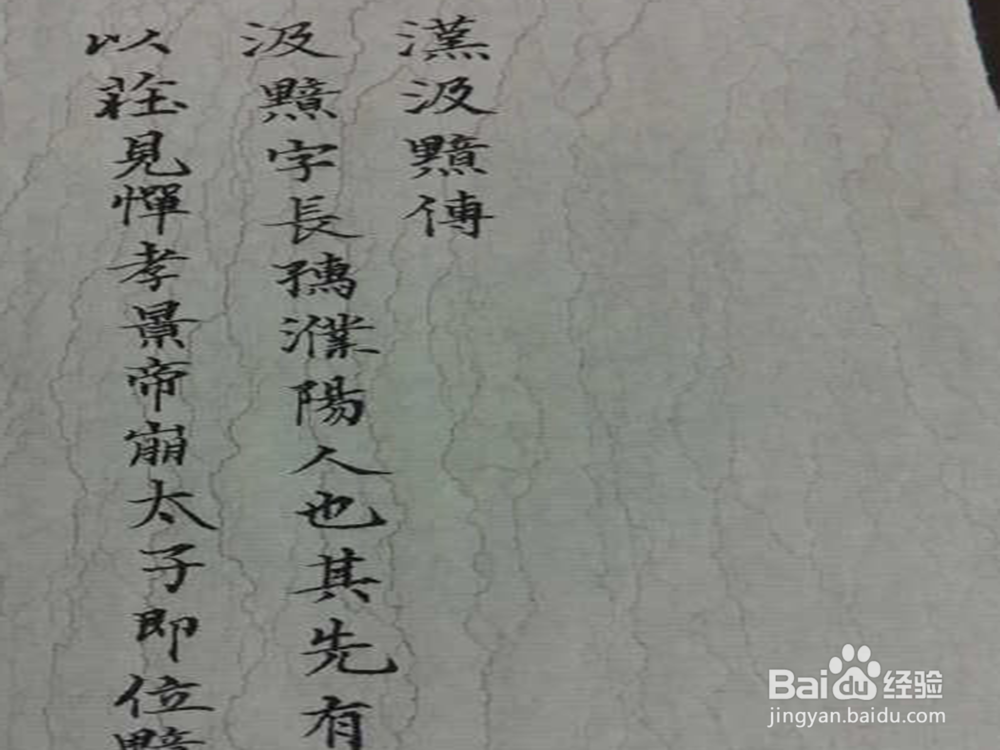 漢汲黯傳
汲黯字長孺濮陽人也其先有
以莊見憚孝景帝崩太子即位黯
Baidu经验
jingyan.baidu.com